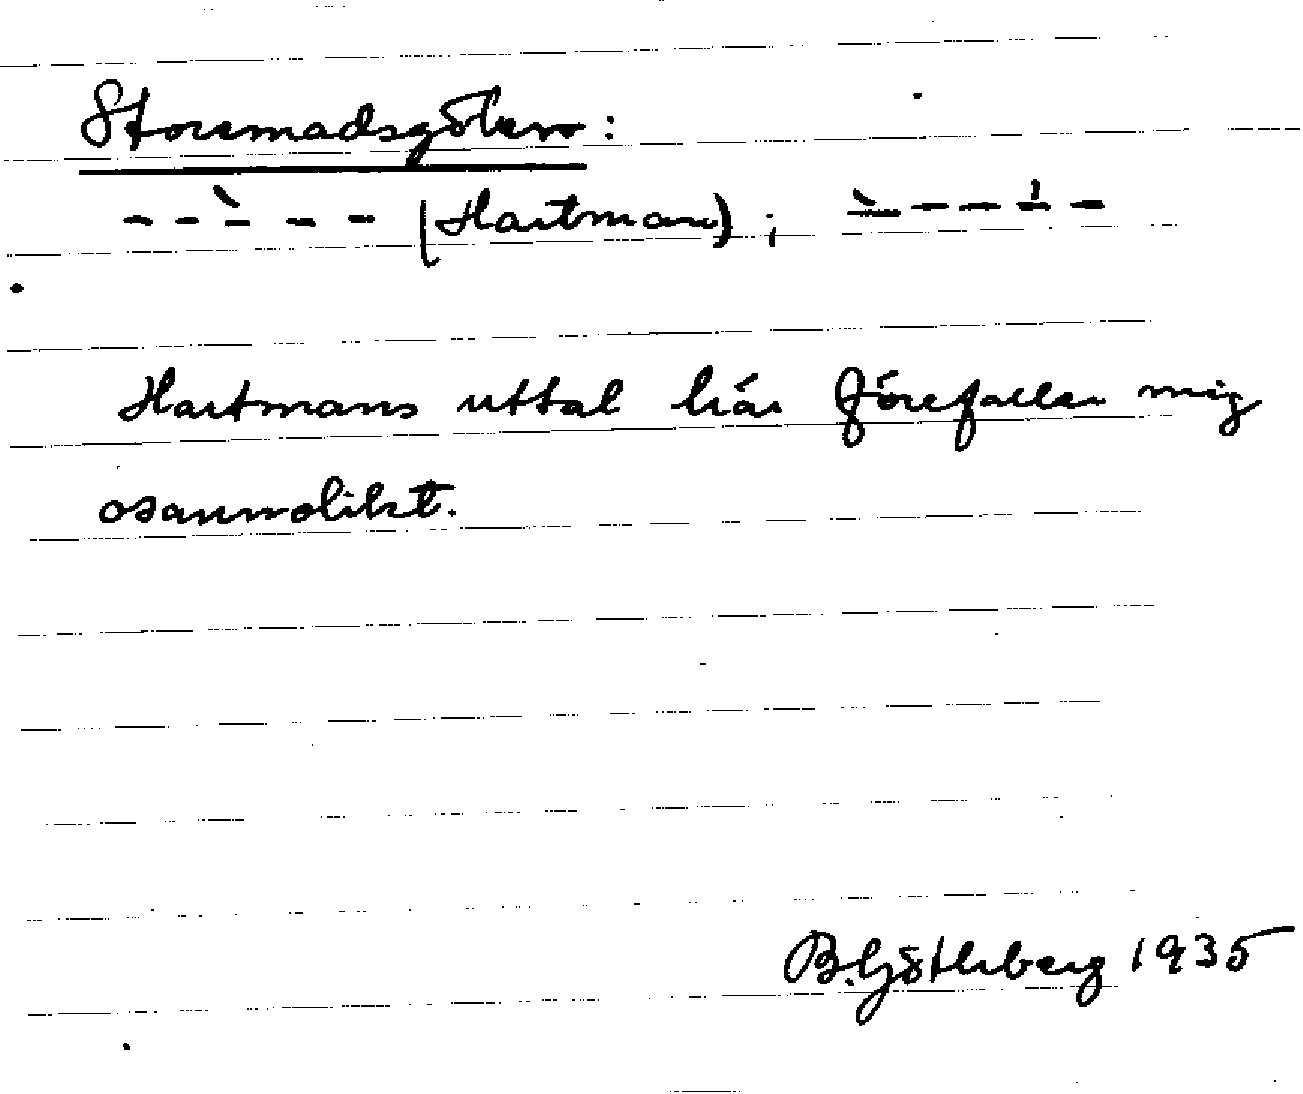 Storemadsgölen:
- - - - - (Hartman); - - - - -
Hartmans uttal här förefaller mig
osannolikt.
B. Götlberg 1935